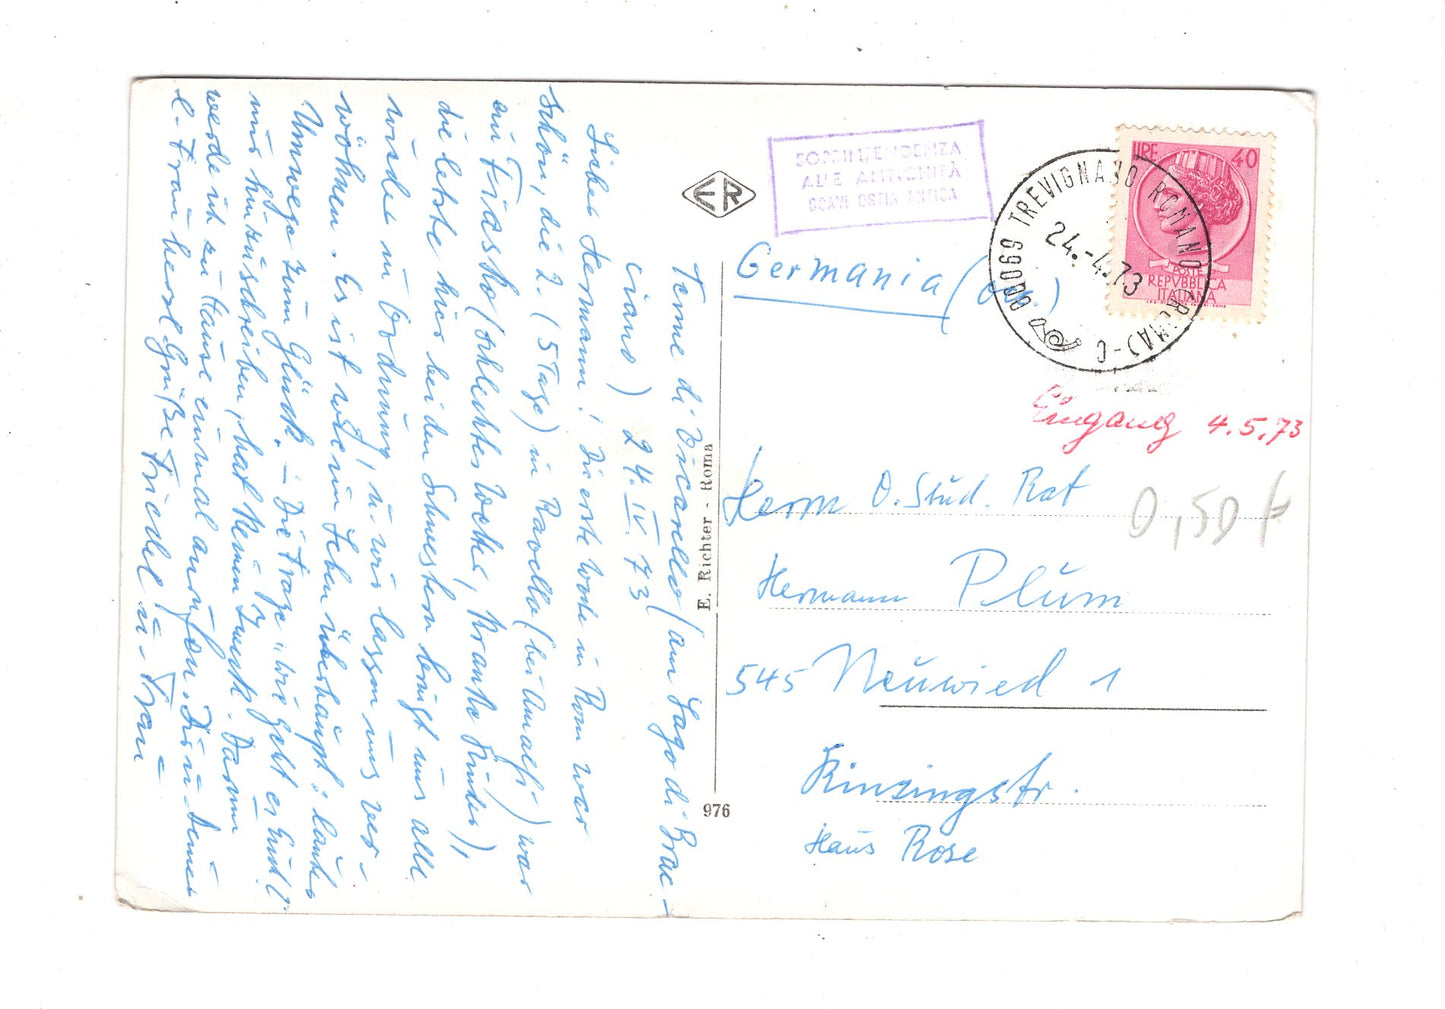 Terme di Vicarello (am Lago di Brac-
ciano) 24. IV. 73
Lieber Hermann! Die erste Woche in Rom war
schön, die 2. (5 Tage) in Ravello (bei Amalfi) war
ein Fiasko (schlechtes Wetter, kranke Kinder),
die letzte hier bei den Schwestern bringt uns alle
wieder in Ordnung, u. wir lassen uns ver-
wöhnen. Es ist wie im Leben überhaupt: lauter
Umwege zum Glück. – Die Frage „wie geht es Euch?"
uns hinzuschreiben, hat keinen Zweck. Darum
werde ich zu Hause einmal anrufen. Dir u. Deiner
l. Frau herzl. Grüße Friedel u. Frau
E. Richter - Roma
976
ER
SOPRINTENDENZA
ALLE ANTICHITÀ
SCAVI OSTIA ANTICA
Germania
LIRE 40
POSTE
REPVBBLICA
ITALIANA
00069 TREVIGNANO ROMANO (ROMA)-C
24.-4.73
Eingang 4.5.73
0,50
Herrn O. Stud. Rat
Hermann Plüm
545 Neuwied 1
Kinzingstr.
Haus Rose